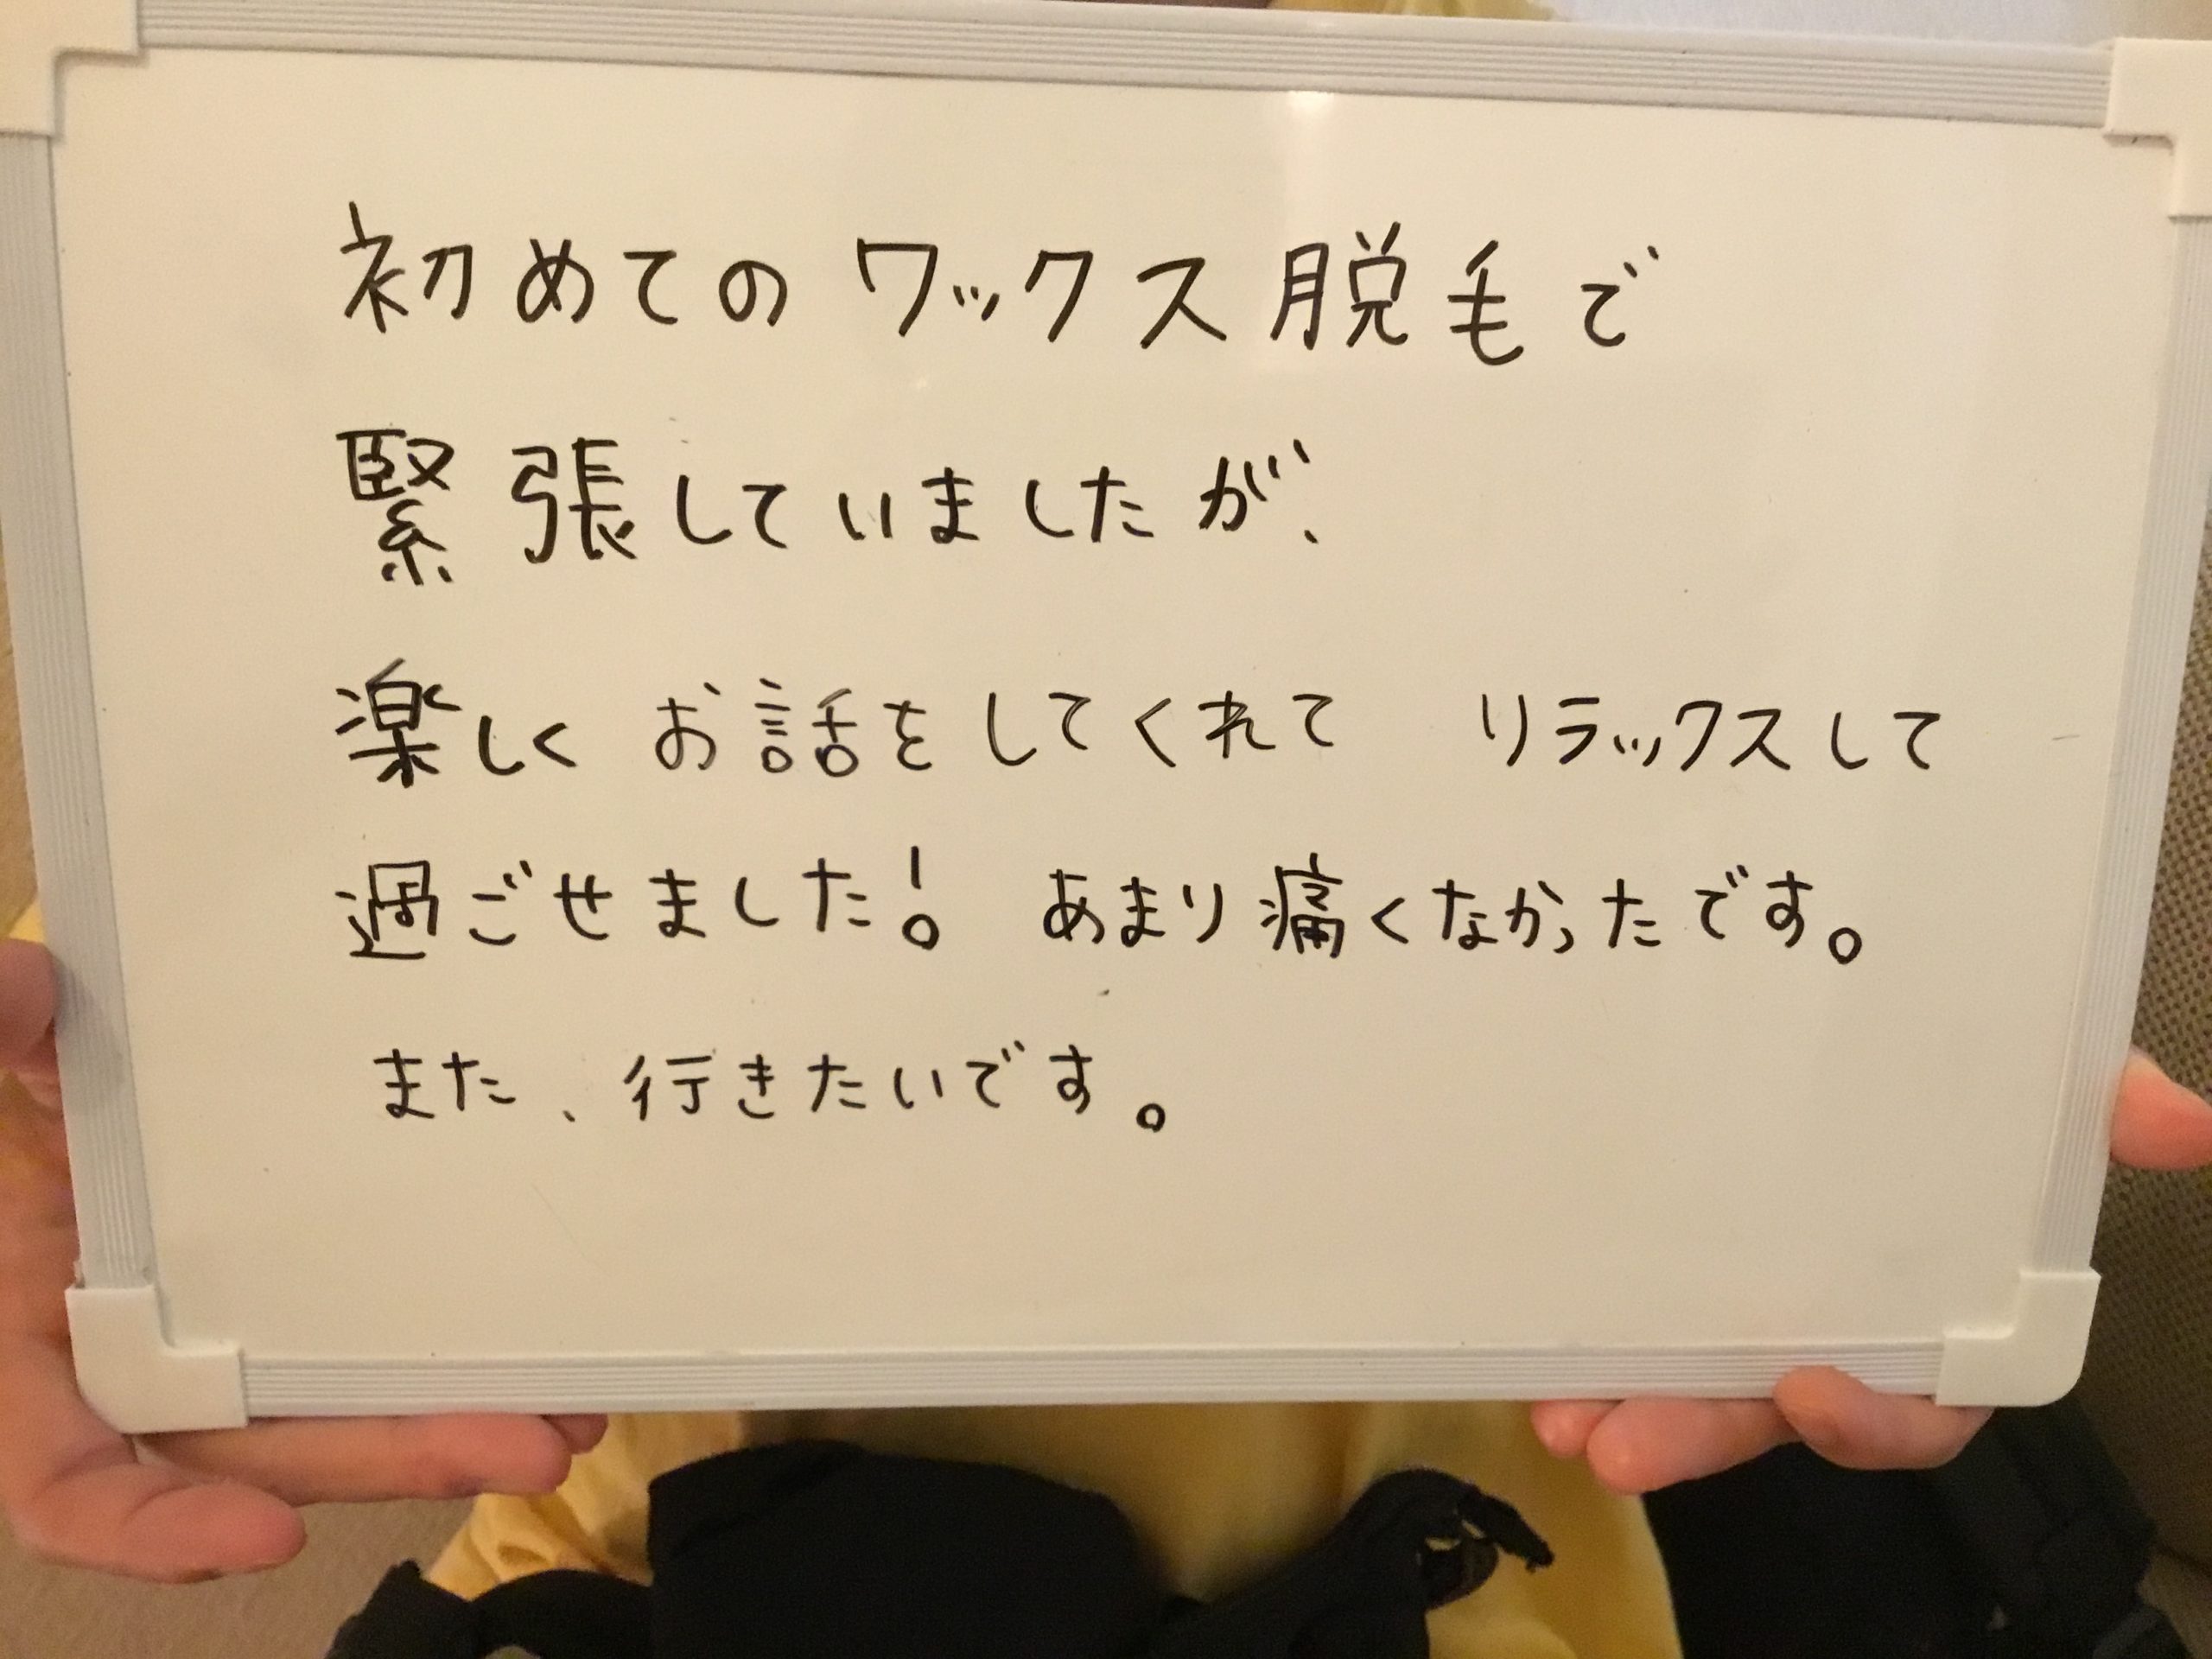 初めてのワックス脱毛で
緊張していましたが、
楽しくお話をしてくれて リラックスして
過ごせました! あまり痛くなかったです。
また、行きたいです。